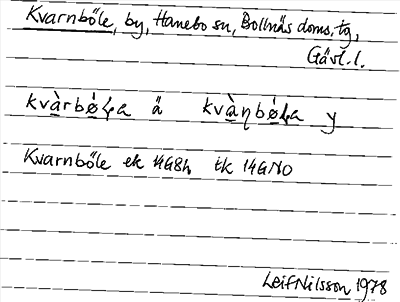 Kvarnböle, by, Hanebo sn, Bollnäs doms. tg,
Gävl. l.
kvàrbǿɫa ä kvàɳbǿɫa y
Kvarnböle ek 14G8h tk 14GNO
Leif Nilsson 1978